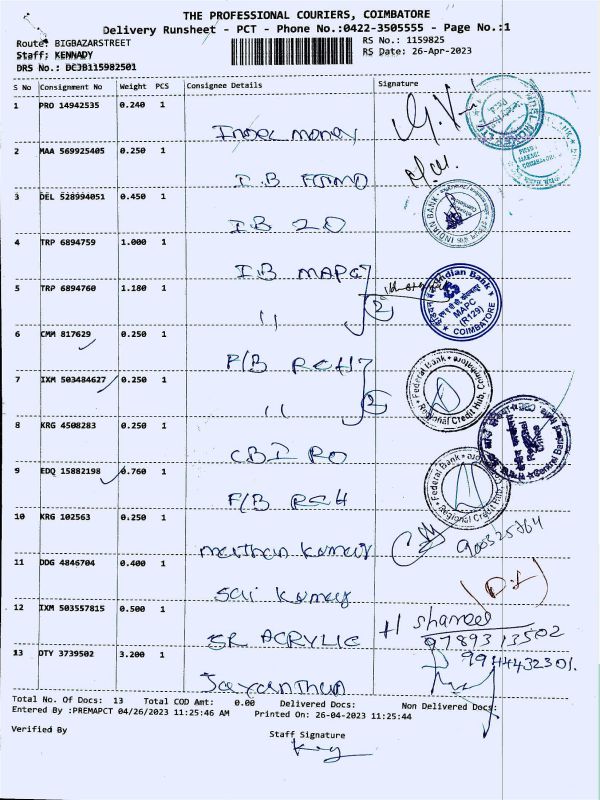 THE PROFESSIONAL COURIERS, COIMBATORE
Delivery Runsheet - PCT - Phone No.:0422-3505555 - Page No.:1
Route: BIGBAZARSTREET
RS No.: 1159825
Staff: KENNADY
RS Date: 26-Apr-2023
DRS No.: DCJB115982501
S No Consignment No Weight PCS Consignee Details Signature
1 PRO 14942535 0.240 1
2 MAA 569925405 0.250 1
I.B
3 DEL 528994051 0.450 1
I.B 20
INDIAN BANK
4 TRP 6894759 1.000 1
I.B MAPC
5 TRP 6894760 1.180 1
" 2
Indian Bank
MAPC
(R129)
COIMBATORE
6 CMM 817629 0.250 1
F/B RCH
7 IXM 503484627 0.250 1
" 2
Federal Bank
Regional Credit Hub, C
8 KRG 4508283 0.250 1
CBI RO
9 EDQ 15882198 0.760 1
F/B RCH
Central Bank
Federal Bank
Regional Credit Hub
10 KRG 102563 0.250 1
Kumar
11 DDG 4846704 0.400 1
Sai Kumar
12 IXM 503557815 0.500 1
SR ACRYLIC
9789313502
13 DTY 3739502 3.200 1
Jayanthan
9944432301.
Total No. Of Docs: 13 Total COD Amt: 0.00 Delivered Docs: Non Delivered Docs:
Entered By :PREMAPCT 04/26/2023 11:25:46 AM Printed On: 26-04-2023 11:25:44
Verified By
Staff Signature